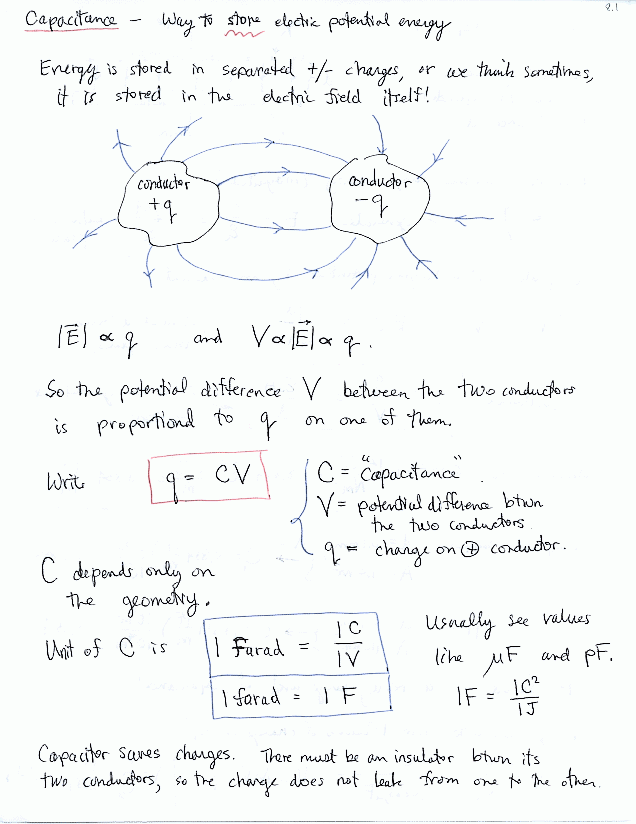 2.1
Capacitance – Way to store electric potential energy
Energy is stored in separated +/- charges, or we think sometimes,
it is stored in the electric field itself!
conductor
+q
conductor
-q
|E⃗| ∝ q and V ∝ |E⃗| ∝ q.
So the potential difference V between the two conductors
is proportional to q on one of them.
Write q = CV
C = "Capacitance".
V = potential difference btwn
the two conductors
q = charge on ⊕ conductor.
C depends only on
the geometry.
Unit of C is 1 Farad = 1C/1V
1 farad = 1 F
Usually see values
like μF and pF.
1F = 1C²/1J
Capacitor saves charges. There must be an insulator btwn its
two conductors, so the charge does not leak from one to the other.